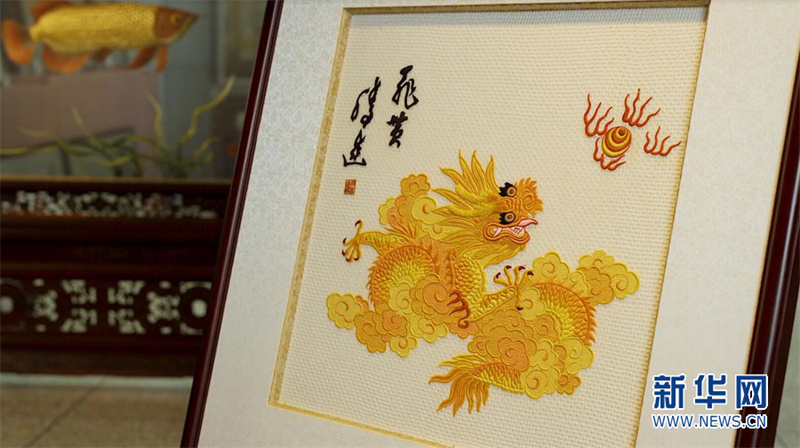 飛黄
腾达
新华网
WWW.NEWS.CN